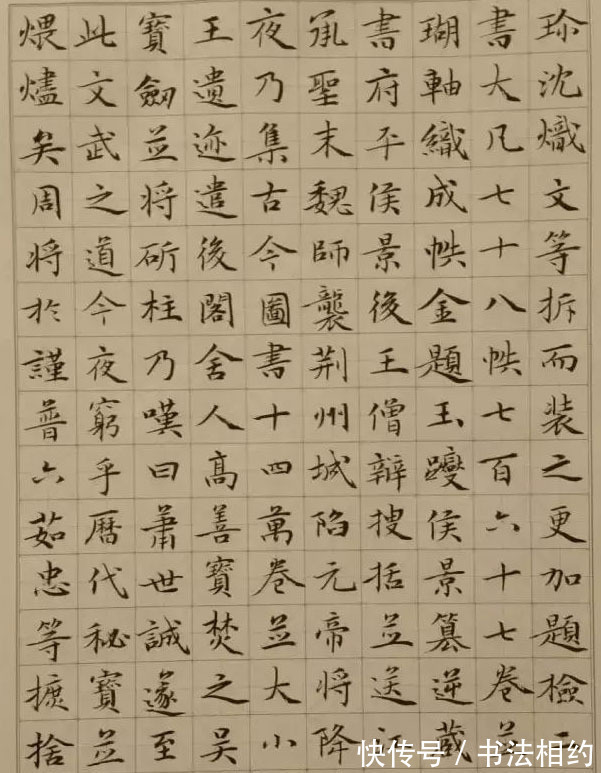 珎沈熾文等拆而装之更加題檢
書大凡七十八帙七百六十七卷並
瑚軸織成帙金題玉躞侯景篡逆藏
書府平侯景後王僧辯搜括並送江
承聖末魏師襲荆州城陷元帝将降
夜乃集古今圖書十四萬卷並大小
王遺迹遣後閣舍人高善寶焚之吴
寶劒並将斫柱乃嘆曰蕭世誠遂至
此文武之道今夜窮乎曆代秘寶並
煨燼矣周将於謹普六茹忠等摭捨
快传号 / 书法相约